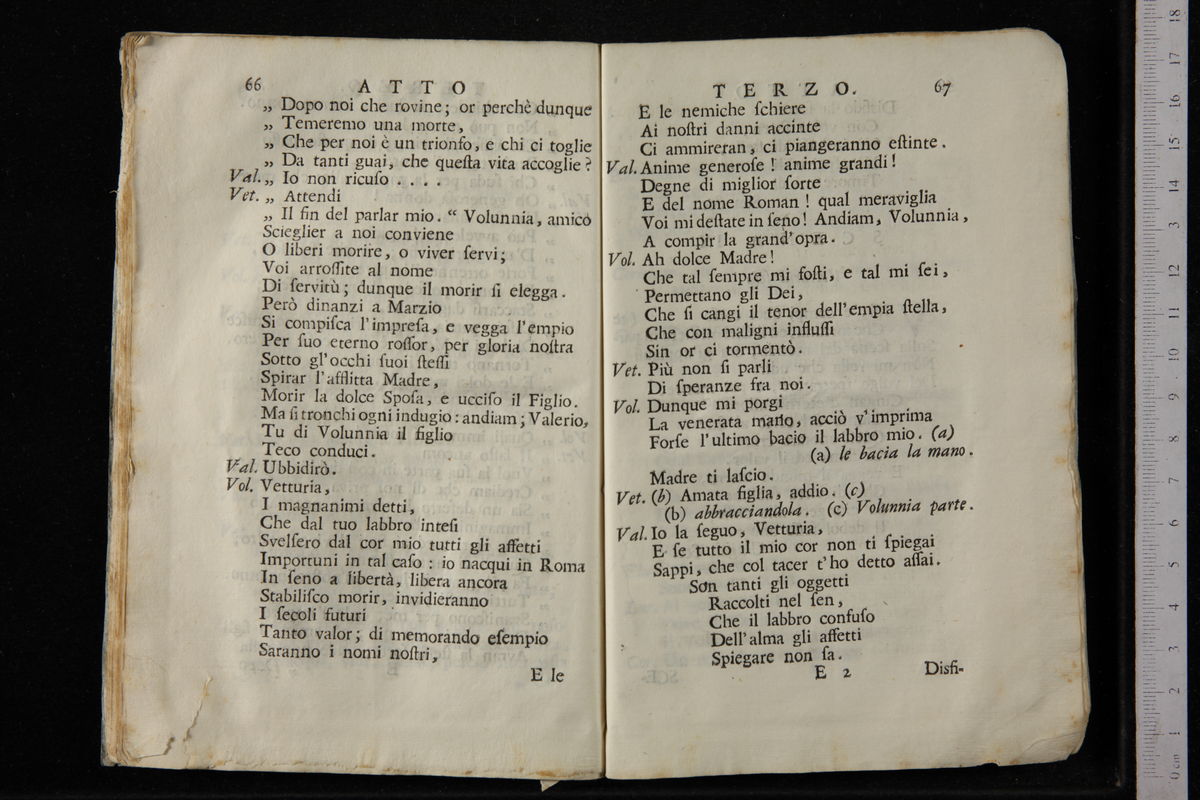 66 ATTO
„ Dopo noi che rovine; or perchè dunque
„ Temeremo una morte,
„ Che per noi è un trionfo, e chi ci toglie
„ Da tanti guai, che queſta vita accoglie?
Val. „ Io non ricuſo . . . .
Vet. „ Attendi
„ Il fin del parlar mio. “ Volunnia, amico
Scieglier a noi conviene
O liberi morire, o viver ſervi;
Voi arroſſite al nome
Di ſervitù; dunque il morir ſi elegga.
Però dinanzi a Marzio
Si compiſca l'impreſa, e vegga l'empio
Per ſuo eterno roſſor, per gloria noſtra
Sotto gl'occhi ſuoi ſteſſi
Spirar l'afflitta Madre,
Morir la dolce Spoſa, e ucciſo il Figlio.
Ma ſi tronchi ogni indugio: andiam; Valerio,
Tu di Volunnia il figlio
Teco conduci.
Val. Ubbidirò.
Vol. Vetturia,
I magnanimi detti,
Che dal tuo labbro inteſi
Svelſero dal cor mio tutti gli affetti
Importuni in tal caſo: io nacqui in Roma
In ſeno a libertà, libera ancora
Stabiliſco morir, invidieranno
I ſecoli futuri
Tanto valor; di memorando eſempio
Saranno i nomi noſtri,
E le
TERZO. 67
E le nemiche ſchiere
Ai noſtri danni accinte
Ci ammireran, ci piangeranno eſtinte.
Val. Anime generoſe! anime grandi!
Degne di miglior ſorte
E del nome Roman! qual meraviglia
Voi mi deſtate in ſeno! Andiam, Volunnia,
A compir la grand'opra.
Vol. Ah dolce Madre!
Che tal ſempre mi foſti, e tal mi ſei,
Permettano gli Dei,
Che ſi cangi il tenor dell'empia ſtella,
Che con maligni influſſi
Sin or ci tormentò.
Vet. Più non ſi parli
Di ſperanze fra noi.
Vol. Dunque mi porgi
La venerata mano, acciò v'imprima
Forſe l'ultimo bacio il labbro mio. (a)
(a) le bacia la mano.
Madre ti laſcio.
Vet. (b) Amata figlia, addio. (c)
(b) abbracciandola. (c) Volunnia parte.
Val. Io la ſeguo, Vetturia,
E ſe tutto il mio cor non ti ſpiegai
Sappi, che col tacer t'ho detto aſſai.
Son tanti gli oggetti
Raccolti nel ſen,
Che il labbro confuſo
Dell'alma gli affetti
Spiegare non ſa.
E 2 Disfi-